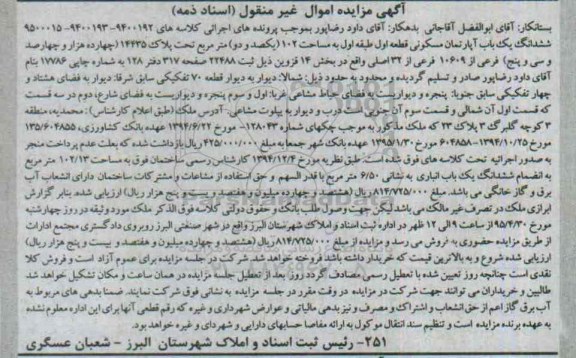 آگهی مزایده اموال غیر منقول (اسناد ذمه)
بستانکار: آقای ابوالفضل آقاجانی بدهکار: آقای داود رضاپور بموجب پرونده های اجرائی کلاسه های ۹۴۰۰۱۹۲-۹۴۰۰۱۹۳-۹۵۰۰۰۱۵
ششدانگ یک باب آپارتمان مسکونی قطعه اول طبقه اول به مساحت ۱۰۲ (یکصد و دو) متر مربع تحت پلاک ۱۴۴۳۵ (چهارده هزار و چهارصد
و سی و پنج) فرعی از ۱۰۶۰۹ فرعی از ۳۲ اصلی واقع در بخش ۱۴ قزوین ذیل ثبت ۲۲۴۸۸ صفحه ۳۱۷ دفتر ۱۲۸ به شماره چاپی ۱۷۷۸۶ بنام
آقای داود رضاپور صادر و تسلیم گردیده و محدود به حدود ذیل: شمالا: دیوار به دیوار قطعه ۷۰ تفکیکی سابق شرقا: دیوار به فضای هشتاد و
چهار تفکیکی سابق جنوبا: پنجره و دیواریست به فضای حیاط مشاعی غربا: اول و سوم پنجره و دیواریست به فضای شارع، دوم در سه قسمت
که قسمت اول آن شمالی و قسمت سوم آن جنوبی است درب و دیوار به پیلوت مشاعی- آدرس ملک (طبق اعلام کارشناس) : محمدیه، منطقه
۳ کوچه گلبرگ ۳ پلاک ۲۳ که ملک مذکور به موجب چکهای شماره ۱۲۸۰۴۳- مورخ ۱۳۹۴/۶/۲۲ عهده بانک کشاورزی، ۱۳۵/۶۰۴۸۵۵
مورخ ۱۳۹۴/۱۰/۲۵- ۶۰۴۸۵۸ مورخ ۱۳۹۵/۱/۳۰ عهده بانک شهر جمعا به مبلغ ۴۲۵/۰۰۰/۰۰۰ ریال بازداشت شده که بعلت عدم پرداخت منجر
به صدور اجرائیه تحت کلاسه های فوق شده است. طبق نظریه مورخ ۱۳۹۴/۱۲/۴ کارشناس رسمی ساختمان فوق به مساحت ۱۰۲/۱۳ متر مربع
به انضمام ششدانگ یک باب انباری به نشانی ۶/۵۰ متر مربع با قدر السهم و حق استفاده از مشاعات و مشترکات ساختمان دارای انشعاب آب
برق و گاز خانگی می باشد. مبلغ ۸۱۴/۷۲۵/۰۰۰ ریال (هشتصد و چهارده میلیون و هفتصد و بیست و پنج هزار ریال) ارزیابی شده. بنابر گزارش
ابرازی ملک در تصرف غیر مالک می باشد لیکن جهت وصول طلب بانک و حقوق دولتی کلاسه فوق الذکر ملک مورد وثیقه در روز چهارشنبه
مورخ ۹۵/۴/۳۰ از ساعت ۹ الی ۱۲ ظهر در اداره ثبت اسناد و املاک شهرستان البرز واقع در شهر صنعتی البرز روبروی دادگستری مجتمع ادارات
از طریق مزایده حضوری به فروش می رسد و مزایده از مبلغ ۸۱۴/۷۲۵/۰۰۰ ریال (هشتصد و چهارده میلیون و هفتصد و بیست و پنج هزار ریال)
ارزیابی شده شروع و به بالاترین قیمت که خریدار داشته باشد فروخته خواهد شد. شرکت در جلسه مزایده برای عموم آزاد است و فروش کلا
نقدی است چنانچه روز تعیین شده با تعطیل رسمی مصادف گردد روز بعد از تعطیل جلسه مزایده در همان ساعت و مکان تشکیل خواهد شد
طالبین و خریداران می توانند جهت شرکت در مزایده در وقت مقرر در جلسه مزایده به نشانی فوق شرکت نمایند. ضمنا بدهی های مربوط به
آب برق گاز اعم از حق انشعاب و اشتراک و مصرف و نیز بدهی مالیاتی و عوارض شهرداری و غیره که رقم قطعی آنها برای این اداره معلوم نشده
به عهده برنده مزایده است و تنظیم سند انتقال موکول به ارائه مفاصا حسابهای دارایی و شهرداری و غیره خواهد بود.
۲۵۱- رئیس ثبت اسناد و املاک شهرستان البرز - شعبان عسگری